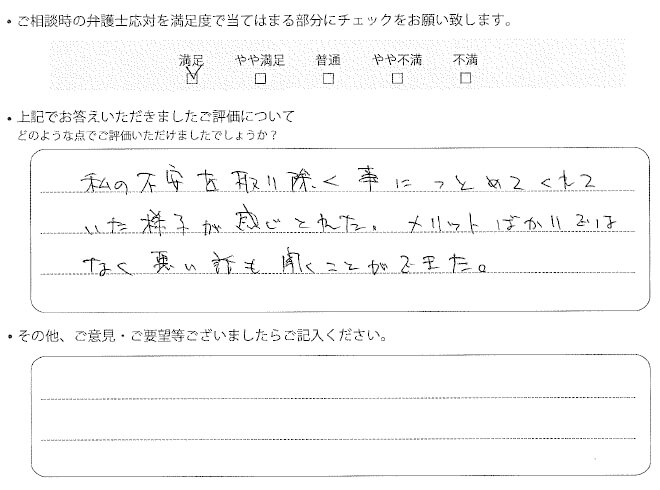 ・ご相談時の弁護士応対を満足度で当てはまる部分にチェックをお願い致します。
満足 やや満足 普通 やや不満 不満
☑ □ □ □ □
・上記でお答えいただきましたご評価について
どのような点でご評価いただけましたでしょうか?
私の不安を取り除く事につとめてくれて
いた様子が感じとれた。メリットばかりでは
なく悪い話も聞くことができた。
・その他、ご意見・ご要望等ございましたらご記入ください。